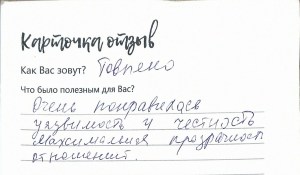 Карточка отзыв
Как Вас зовут?
Что было полезным для Вас?
Очень понравилась
уязвимость и честность
максимальная прозрачность
отношений.